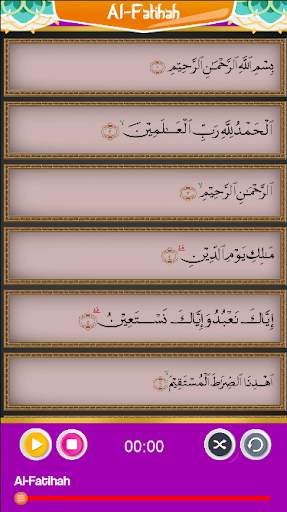 Al-Fatihah
بِسْمِ ٱللَّهِ ٱلرَّحْمَـٰنِ ٱلرَّحِيمِ ١
ٱلْحَمْدُ لِلَّهِ رَبِّ ٱلْعَـٰلَمِينَ ۙ ٢
ٱلرَّحْمَـٰنِ ٱلرَّحِيمِ ۙ ٣
مَـٰلِكِ يَوْمِ ٱلدِّينِ ۗ ٤
إِيَّاكَ نَعْبُدُ وَإِيَّاكَ نَسْتَعِينُ ۗ ٥
ٱهْدِنَا ٱلصِّرَٰطَ ٱلْمُسْتَقِيمَ ۙ ٦
00:00
Al-Fatihah